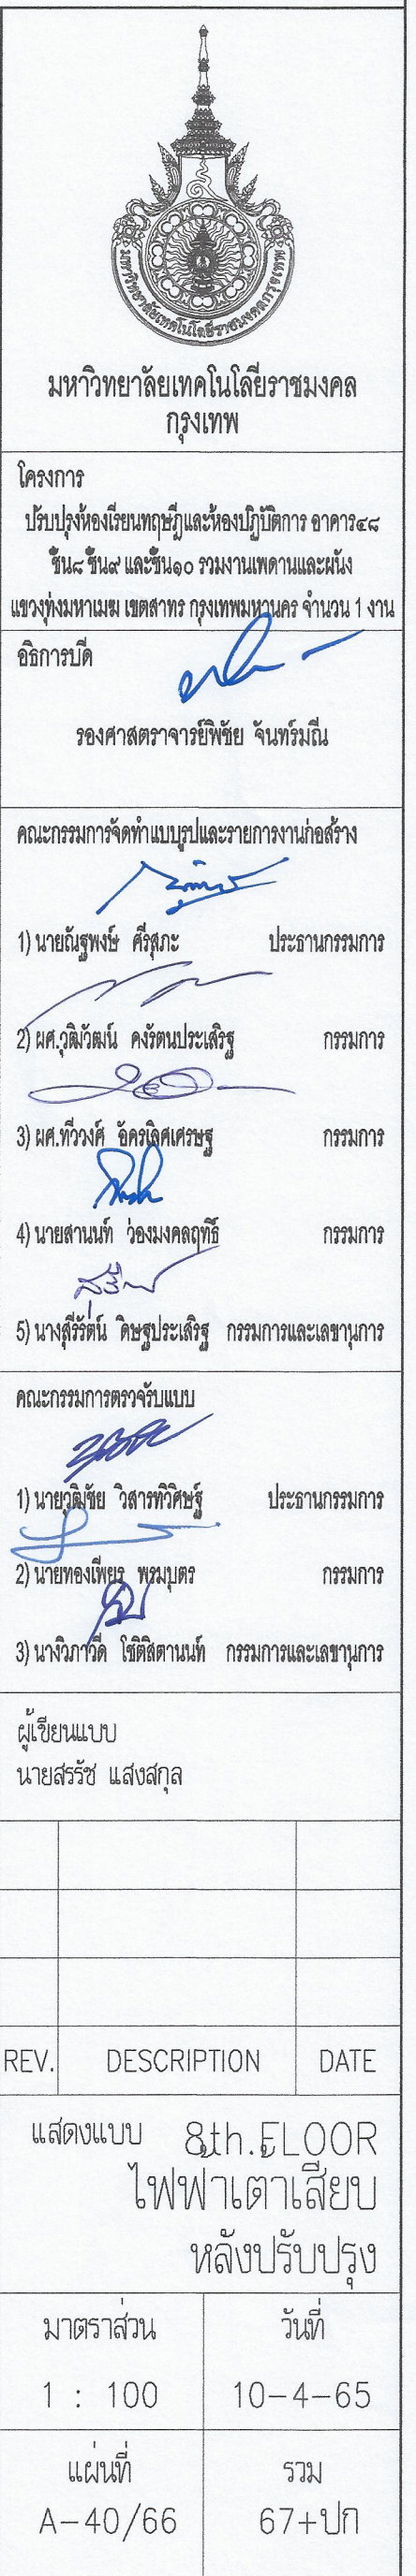 มหาวิทยาลัยเทคโนโลยีราชมงคลกรุงเทพ
มหาวิทยาลัยเทคโนโลยีราชมงคล
กรุงเทพ
โครงการ
ปรับปรุงห้องเรียนทฤษฎีและห้องปฏิบัติการ อาคาร๔๘
ชั้น๘ ชั้น๙ และชั้น๑๐ รวมงานเพดานและผนัง
แขวงทุ่งมหาเมฆ เขตสาทร กรุงเทพมหานคร จำนวน 1 งาน
อธิการบดี
รองศาสตราจารย์พิชัย จันทร์มณี
คณะกรรมการจัดทำแบบรูปและรายการงานก่อสร้าง
1) นายณัฐพงษ์ ศรีสุภะ ประธานกรรมการ
2) ผศ.วุฒิวัฒน์ คงรัตนประเสริฐ กรรมการ
3) ผศ.ทวีวงศ์ อัครเลิศเศรษฐ กรรมการ
4) นายสานนท์ ว่องมงคลฤทธิ์ กรรมการ
5) นางสุรีรัตน์ ดิษฐประเสริฐ กรรมการและเลขานุการ
คณะกรรมการตรวจรับแบบ
1) นายวุฒิชัย วิสารทวิศิษฐ์ ประธานกรรมการ
2) นายทองเพียร พรมบุตร กรรมการ
3) นางวิภาวดี โชติสิตานนท์ กรรมการและเลขานุการ
ผู้เขียนแบบ
นายสรรัช แสงสกุล
REV. DESCRIPTION DATE
แสดงแบบ 8th.FLOOR
ไฟฟ้าเต้าเสียบ
หลังปรับปรุง
มาตราส่วน วันที่
1 : 100 10-4-65
แผ่นที่ รวม
A-40/66 67+ปก